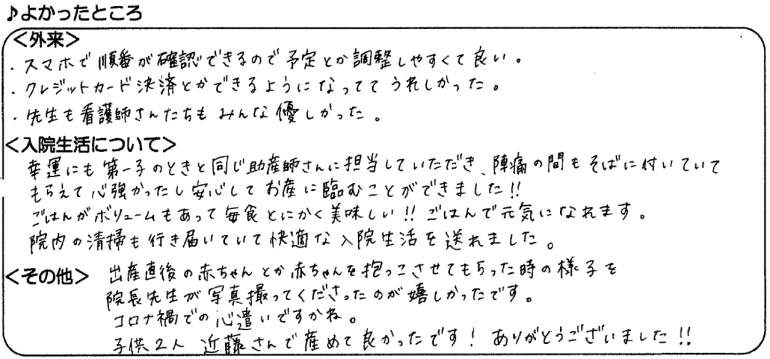 ♪よかったところ
<外来>
・スマホで順番が確認できるので予定とか調整しやすくて良い。
・クレジットカード決済とかできるようになっててうれしかった。
・先生も看護師さんたちもみんな優しかった。
<入院生活について>
幸運にも第一子のときと同じ助産師さんに担当していただき、陣痛の間もそばに付いていて
もらえて心強かったし安心してお産に臨むことができました!!
ごはんがボリュームもあって毎食とにかく美味しい!! ごはんで元気になれます。
院内の清掃も行き届いていて快適な入院生活を送れました。
<その他> 出産直後の赤ちゃんとか赤ちゃんを抱っこさせてもらった時の様子を
院長先生が写真撮ってくださったのが嬉しかったです。
コロナ禍での心遣いですかね。
子供2人 近藤さんで産めて良かったです! ありがとうございました!!